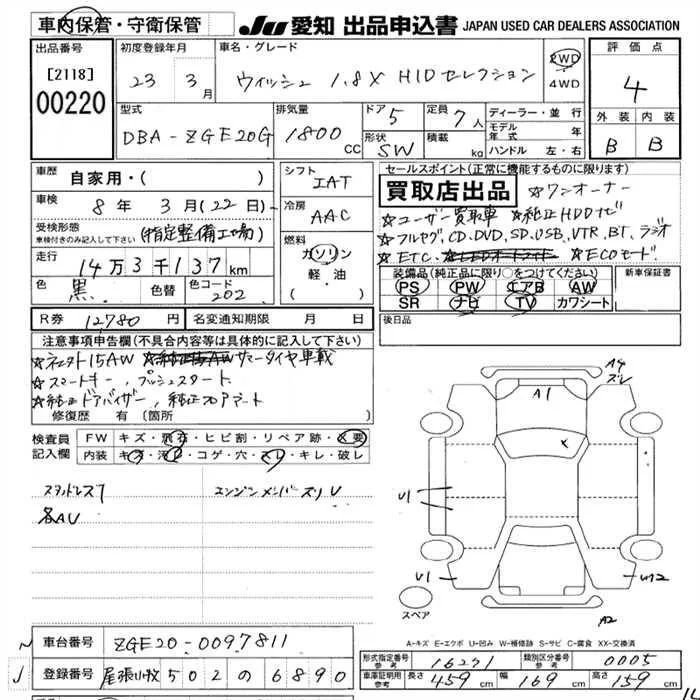 車内保管・守衛保管 JU 愛知 出品申込書 JAPAN USED CAR DEALERS ASSOCIATION
出品番号 初度登録年月 車名・グレード 評価点
[2118] 23 3月 ウィッシュ 1.8X HIDセレクション 2WD 4
00220 4WD
型式 排気量 ドア 5 定員 7人 ディーラー・並行 外装 内装
DBA-ZGE20G 1800cc 形状 SW 積載 kg モデル年式 年 B B
ハンドル 左・右
車歴 自家用・( ) シフト IAT セールスポイント(正常に機能するものに限ります)
車検 8年 3月(22日) 冷房 AAC 買取店出品 ☆ワンオーナー
受検形態 (指定整備工場) ☆ユーザー買取車 ☆純正HDDナビ
車検付きのみ記入して下さい 燃料 ガソリン ☆フルセグ,CD,DVD,SD,USB,VTR,BT,ラジオ
走行 14万3千137km 軽油 ☆ETC ☆ECOモード
色 黒 色替 色コード 202 ・( ) 装備品(純正品に限り○をつけてください) 新車保証書
PS PW エアB AW
SR ナビ TV カワシート
R券 12,780円 名変通知期限 月 日 後日品
注意事項申告欄(不具合内容等は具体的に記入して下さい)
15AW サマータイヤ車載
☆スマートキー,プッシュスタート
☆純正ドアバイザー,純正フロアマート
修復歴 有(箇所
検査員 FW キズ・飛石・ヒビ割・リペア跡・X要
記入欄 内装 キズ・汚レ・コゲ・穴・スレ・キレ・破レ
各AU エンジンメンバーズリU
A4
ズレ
A1
X
U1
U1 UR2
スペア A2
A-キズ E-エクボ U-凹み W-補修跡 S-サビ C-腐食 XX-交換済
車台番号 ZGE20-0097811 形式指定番号 参考 16231 類別区分番号 参考 0005
登録番号 尾張小牧502の6890 車庫証明用 参考 長さ 459cm 幅 169cm 高さ 159cm